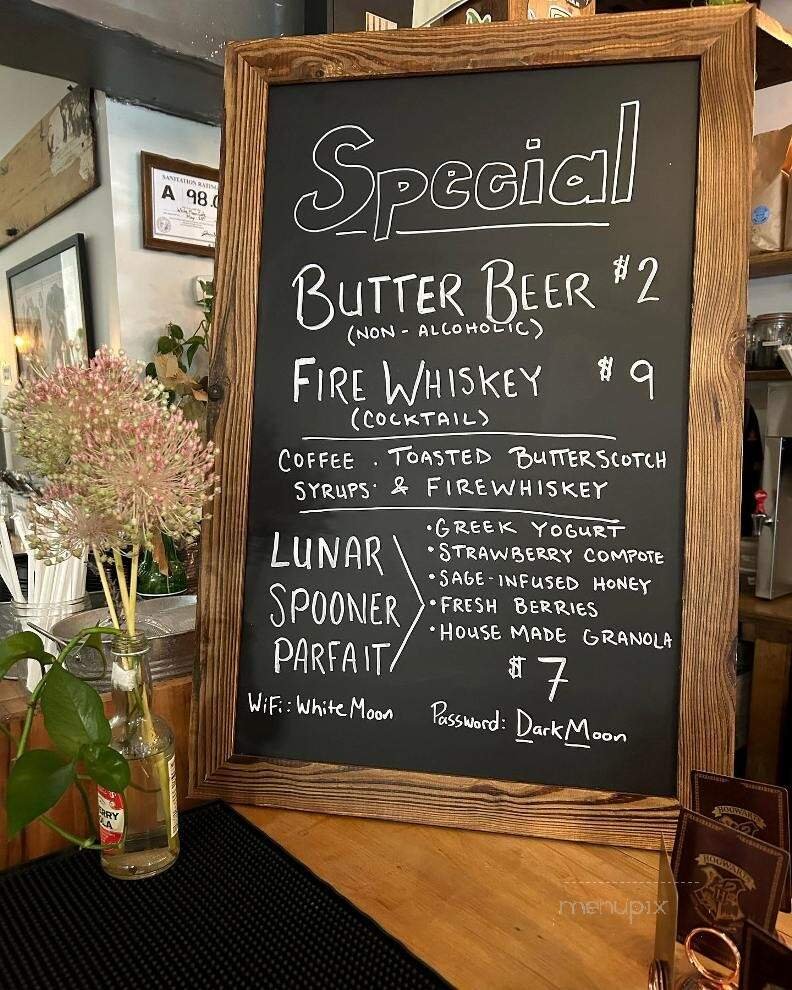 SANITATION RATING
A 98.0
Special
BUTTER BEER $2
(NON - ALCOHOLIC)
FIRE WHISKEY $9
(COCKTAIL)
COFFEE . TOASTED BUTTERSCOTCH
SYRUPS & FIREWHISKEY
LUNAR
SPOONER
PARFAIT
•GREEK YOGURT
•STRAWBERRY COMPOTE
•SAGE-INFUSED HONEY
•FRESH BERRIES
•HOUSE MADE GRANOLA
$7
WiFi: WhiteMoon Password: DarkMoon
HOGWARTS
HOGWARTS
menupix